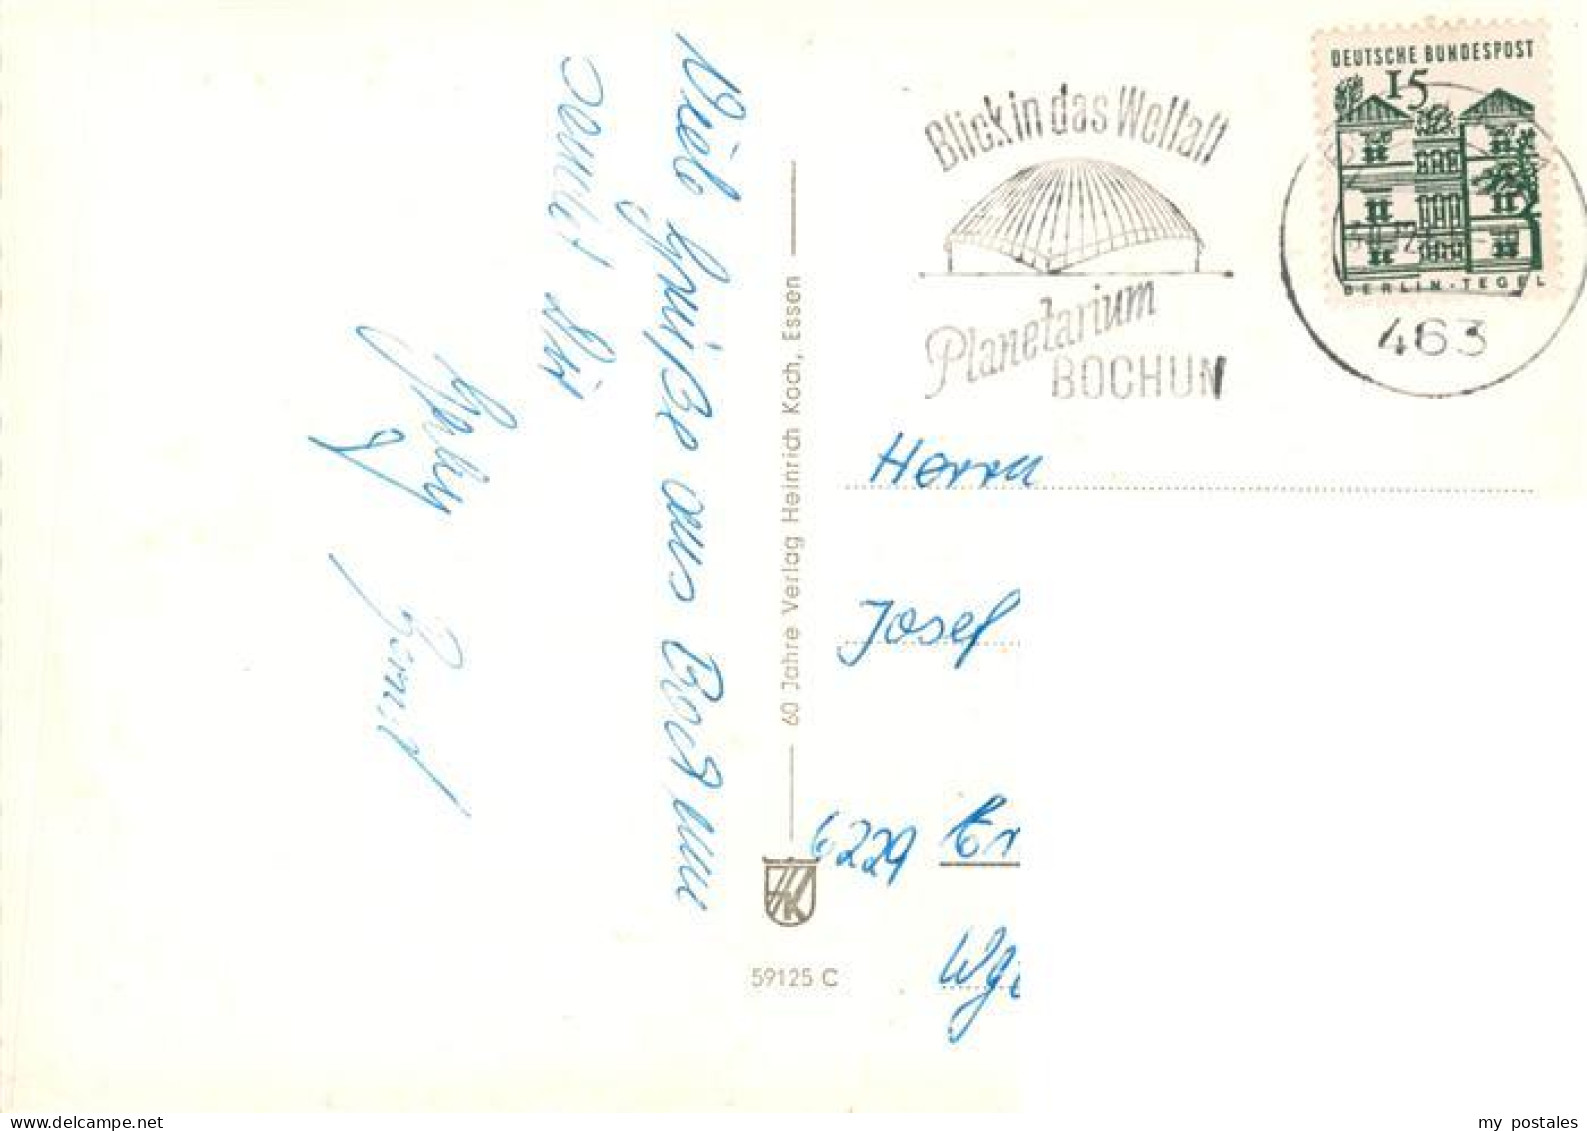 Viele Grüße aus Bochum
sendet Dir
Bernd
60 Jahre Verlag Heinrich Koch, Essen
59125 C
Blick in das Weltall
Planetarium
BOCHUM
DEUTSCHE BUNDESPOST
15
BERLIN-TEGEL
463
Herrn
Josef
6229 Er
www.delcampe.net
my postales